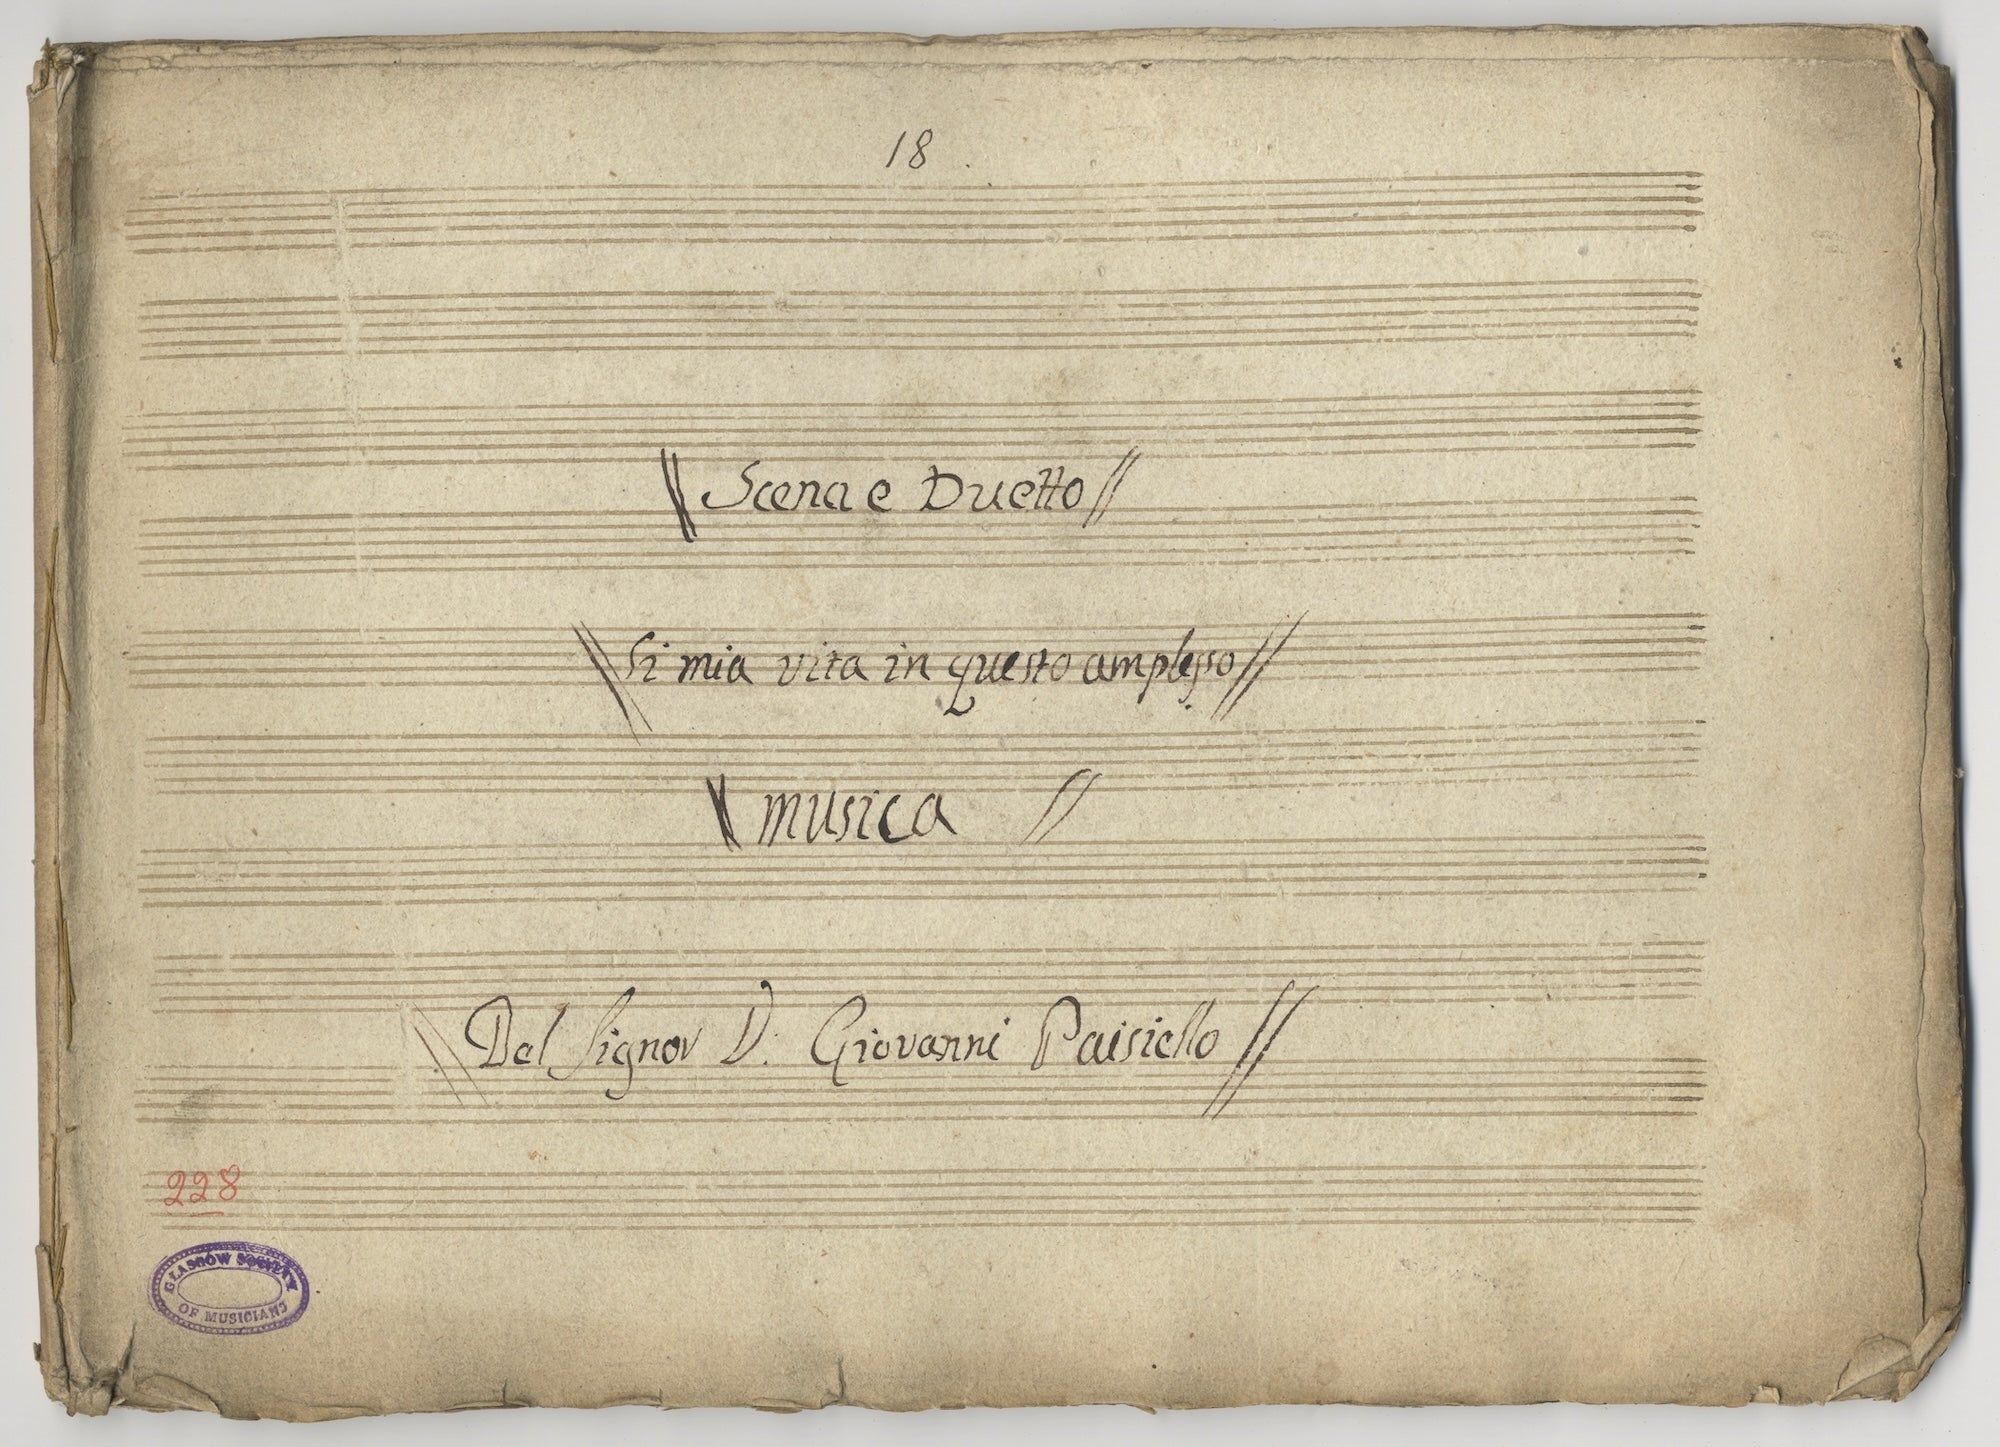 18.
\\ Scena e Duetto //
\\ Si mia vita in questo amplesso //
\\ musica //
\\ Del Signor D. Giovanni Paisiello //
228
GLASGOW SOCIETY
OF MUSICIANS